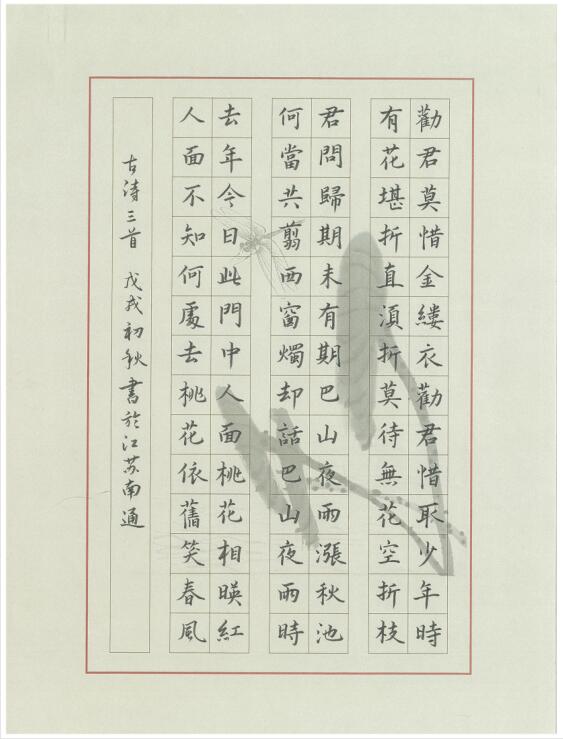 勸君莫惜金縷衣勸君惜取少年時
有花堪折直須折莫待無花空折枝
君問歸期未有期巴山夜雨漲秋池
何當共翦西窗燭却話巴山夜雨時
去年今日此門中人面桃花相暎紅
人面不知何處去桃花依舊笑春風
古诗三首 戊戌初秋書於江苏南通